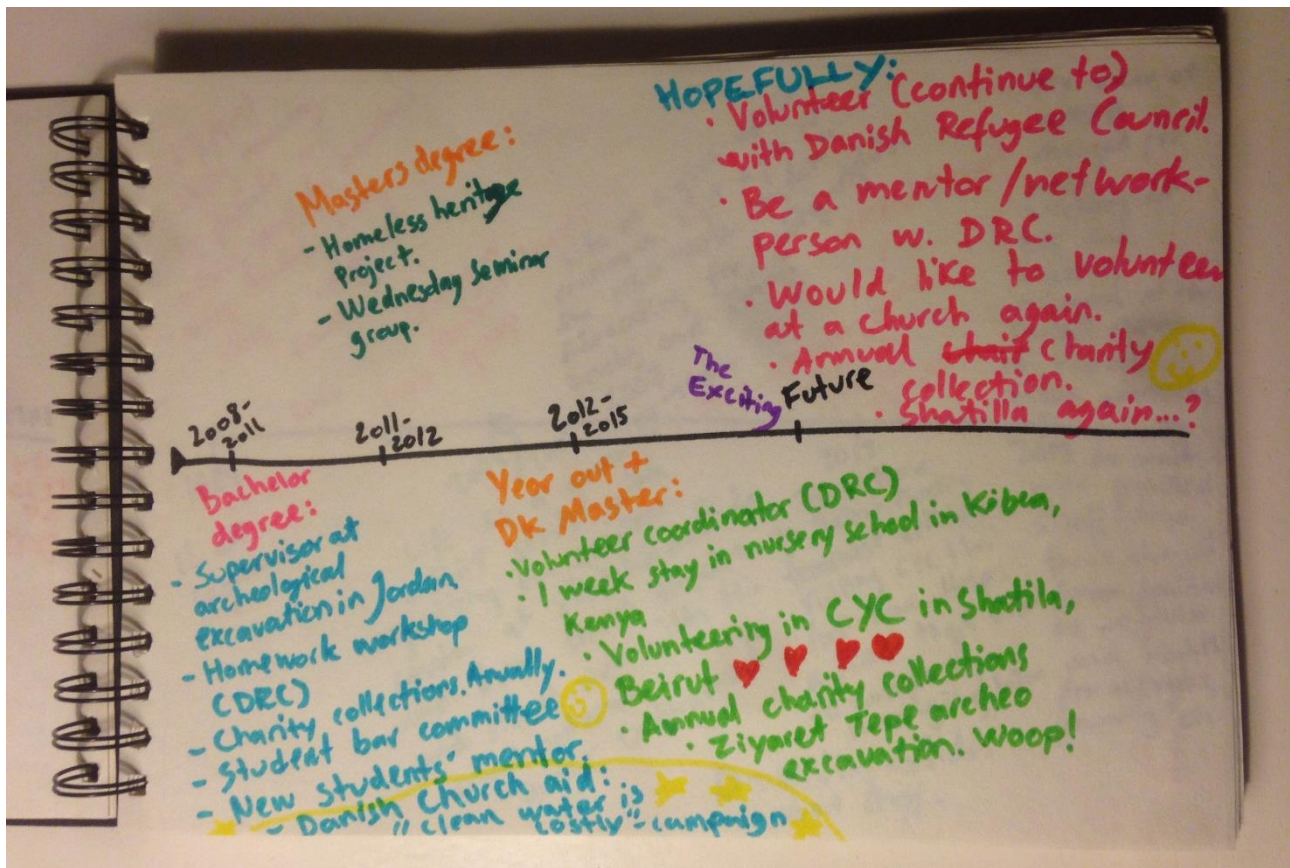 HOPEFULLY:
· Volunteer (continue to)
with Danish Refugee Council.
· Be a mentor/network-
person w. DRC.
· Would like to volunteer
at a church again.
· Annual chait charity
collection.
· Shatilla again...?
Masters degree:
- Homeless heritage
Project.
- Wednesday seminar
group.
2008-
2011
2011-
2012
2012-
2015
The
Exciting
Future
Bachelor
degree:
- Supervisor at
archeological
excavation in Jordan
- Homework workshop
(DRC)
- Charity collections. Anually.
- Student bar committee
- New students' mentor.
- Danish Church aid:
"clean water is
costly"-campaign
Year out +
DK Master:
· Volunteer coordinator (DRC)
· 1 week stay in nursery school in Kibea,
Kenya
· Volunteering in CYC in Shatila,
Beirut
· Annual charity collections
· Ziyaret Tepe archeo
excavation. Woop!